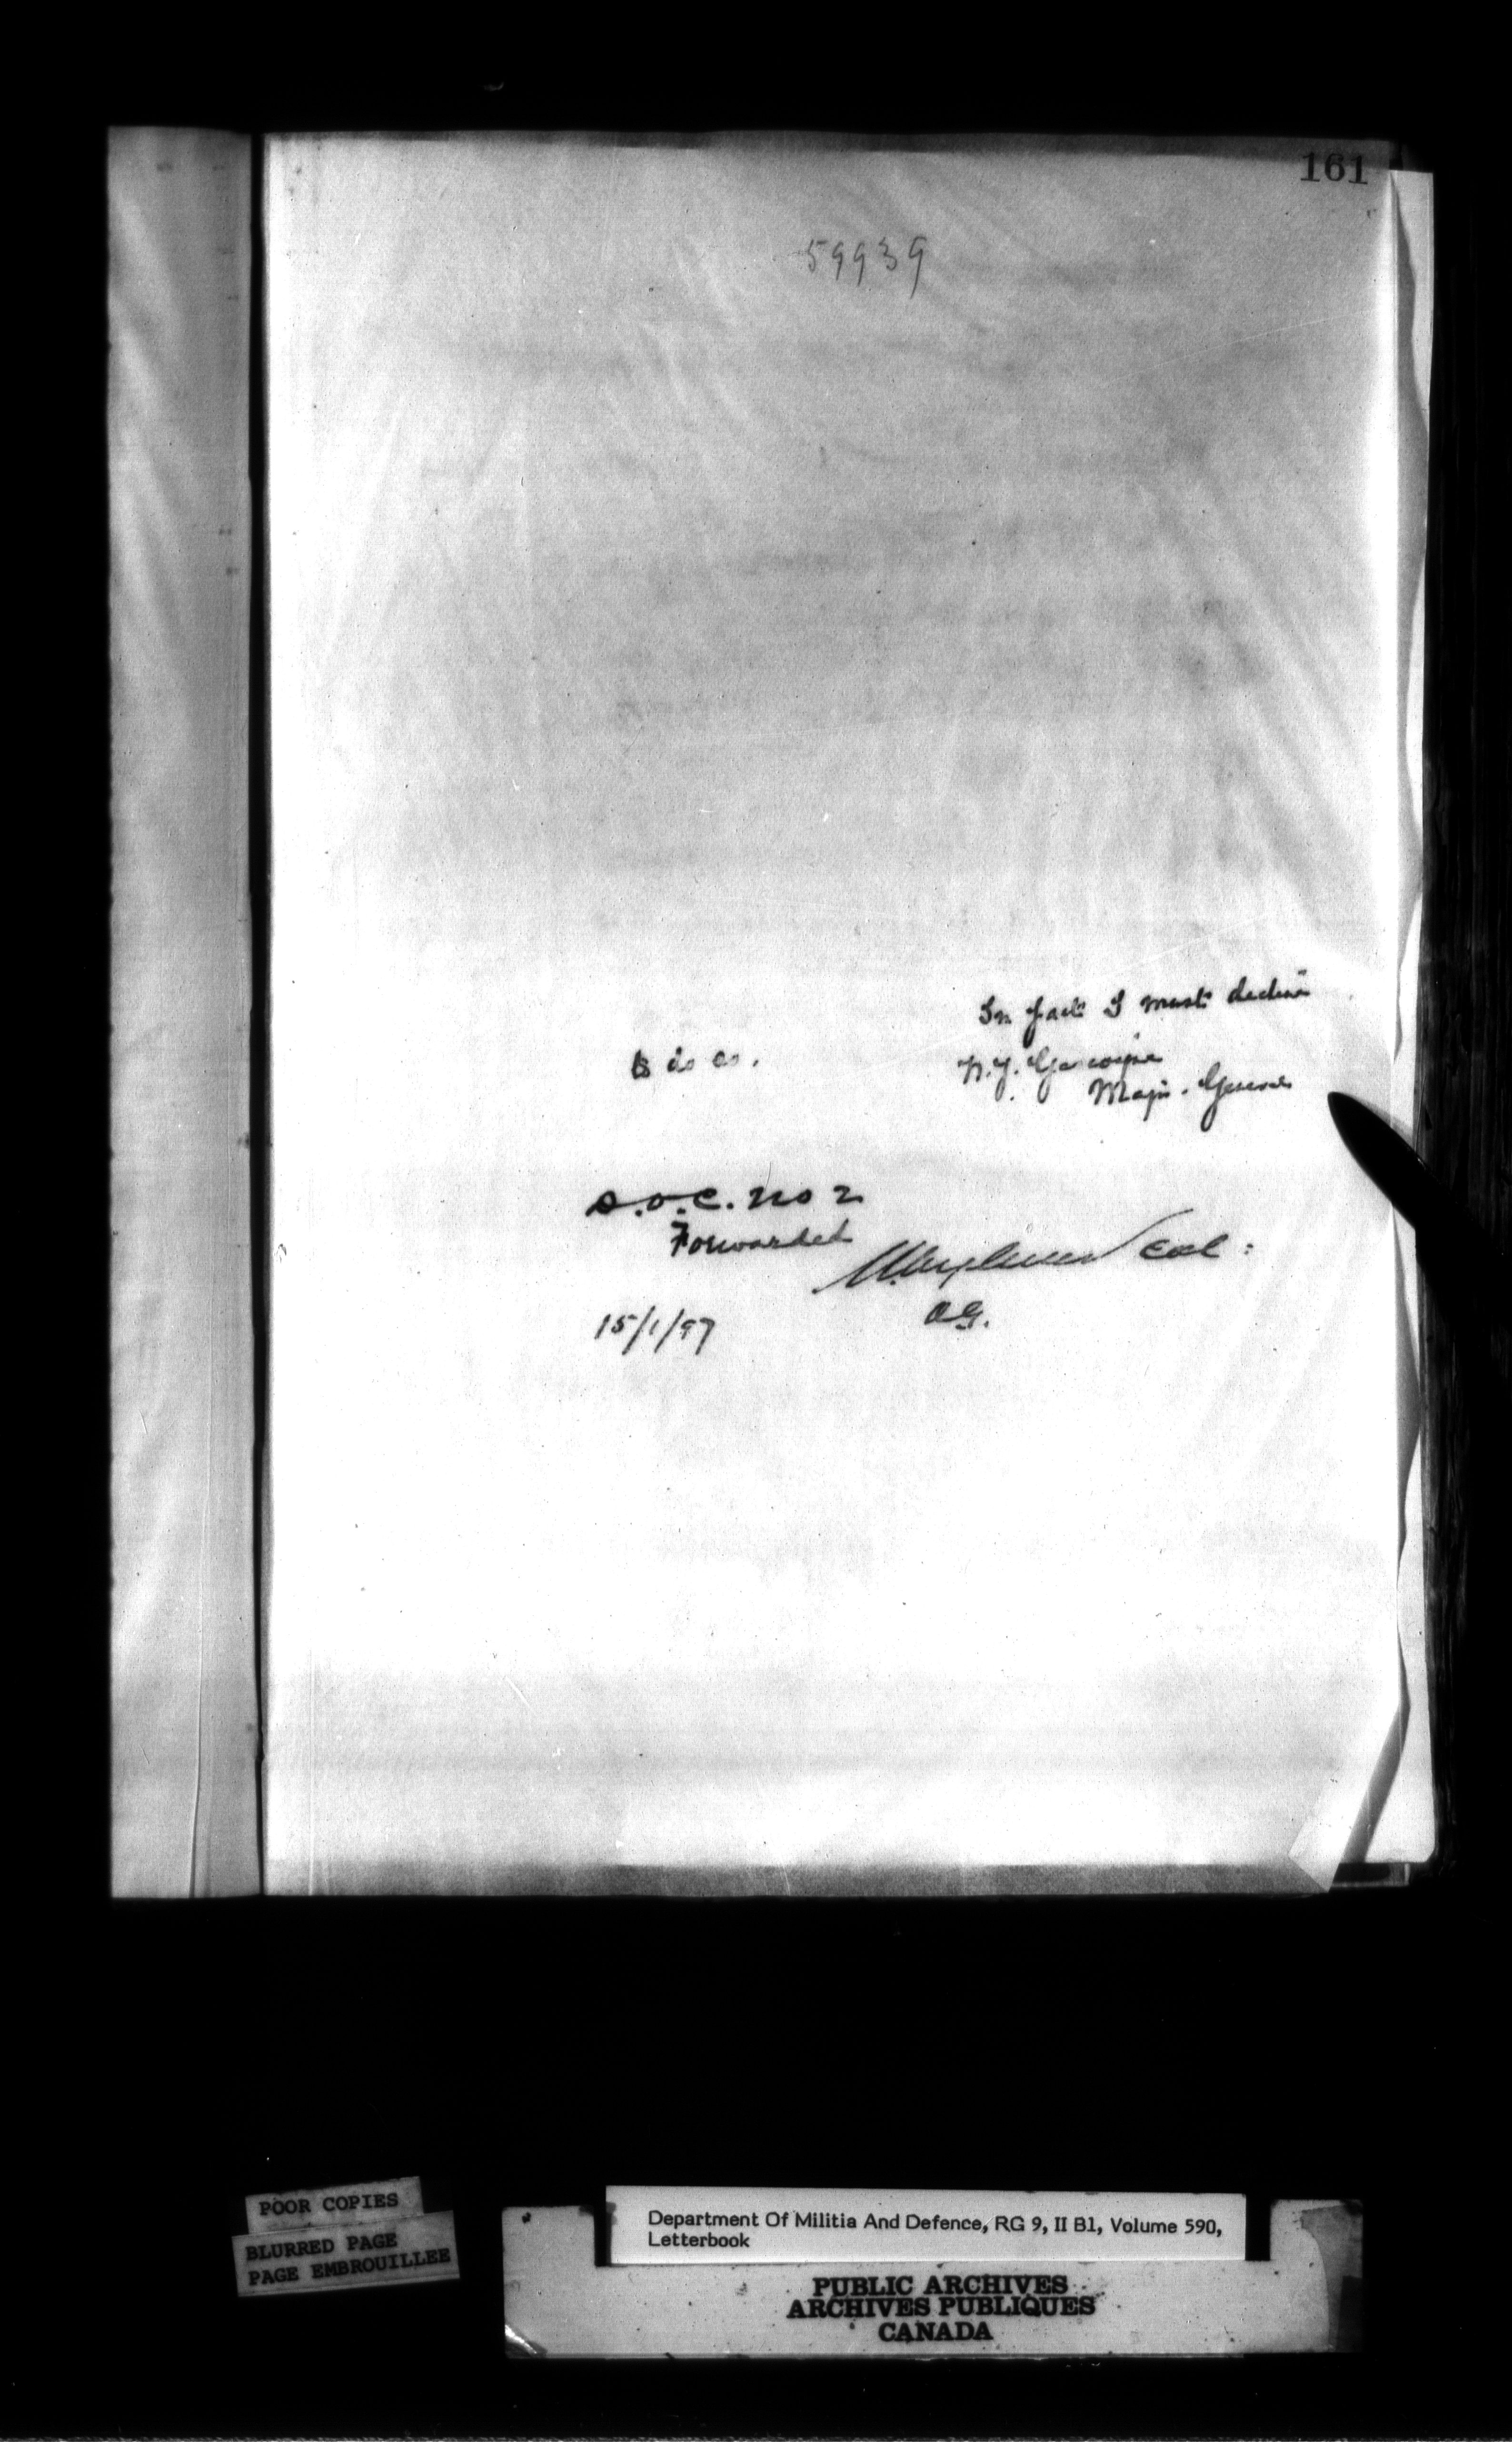 161
59939
In fact I must decline
W.J. Gascoigne
Major. General
D.O.C. No 2
Forwarded
Col:
AG.
15/1/97
POOR COPIES
BLURRED PAGE
PAGE EMBROUILLEE
Department Of Militia And Defence, RG 9, II B1, Volume 590,
Letterbook
PUBLIC ARCHIVES
ARCHIVES PUBLIQUES
CANADA